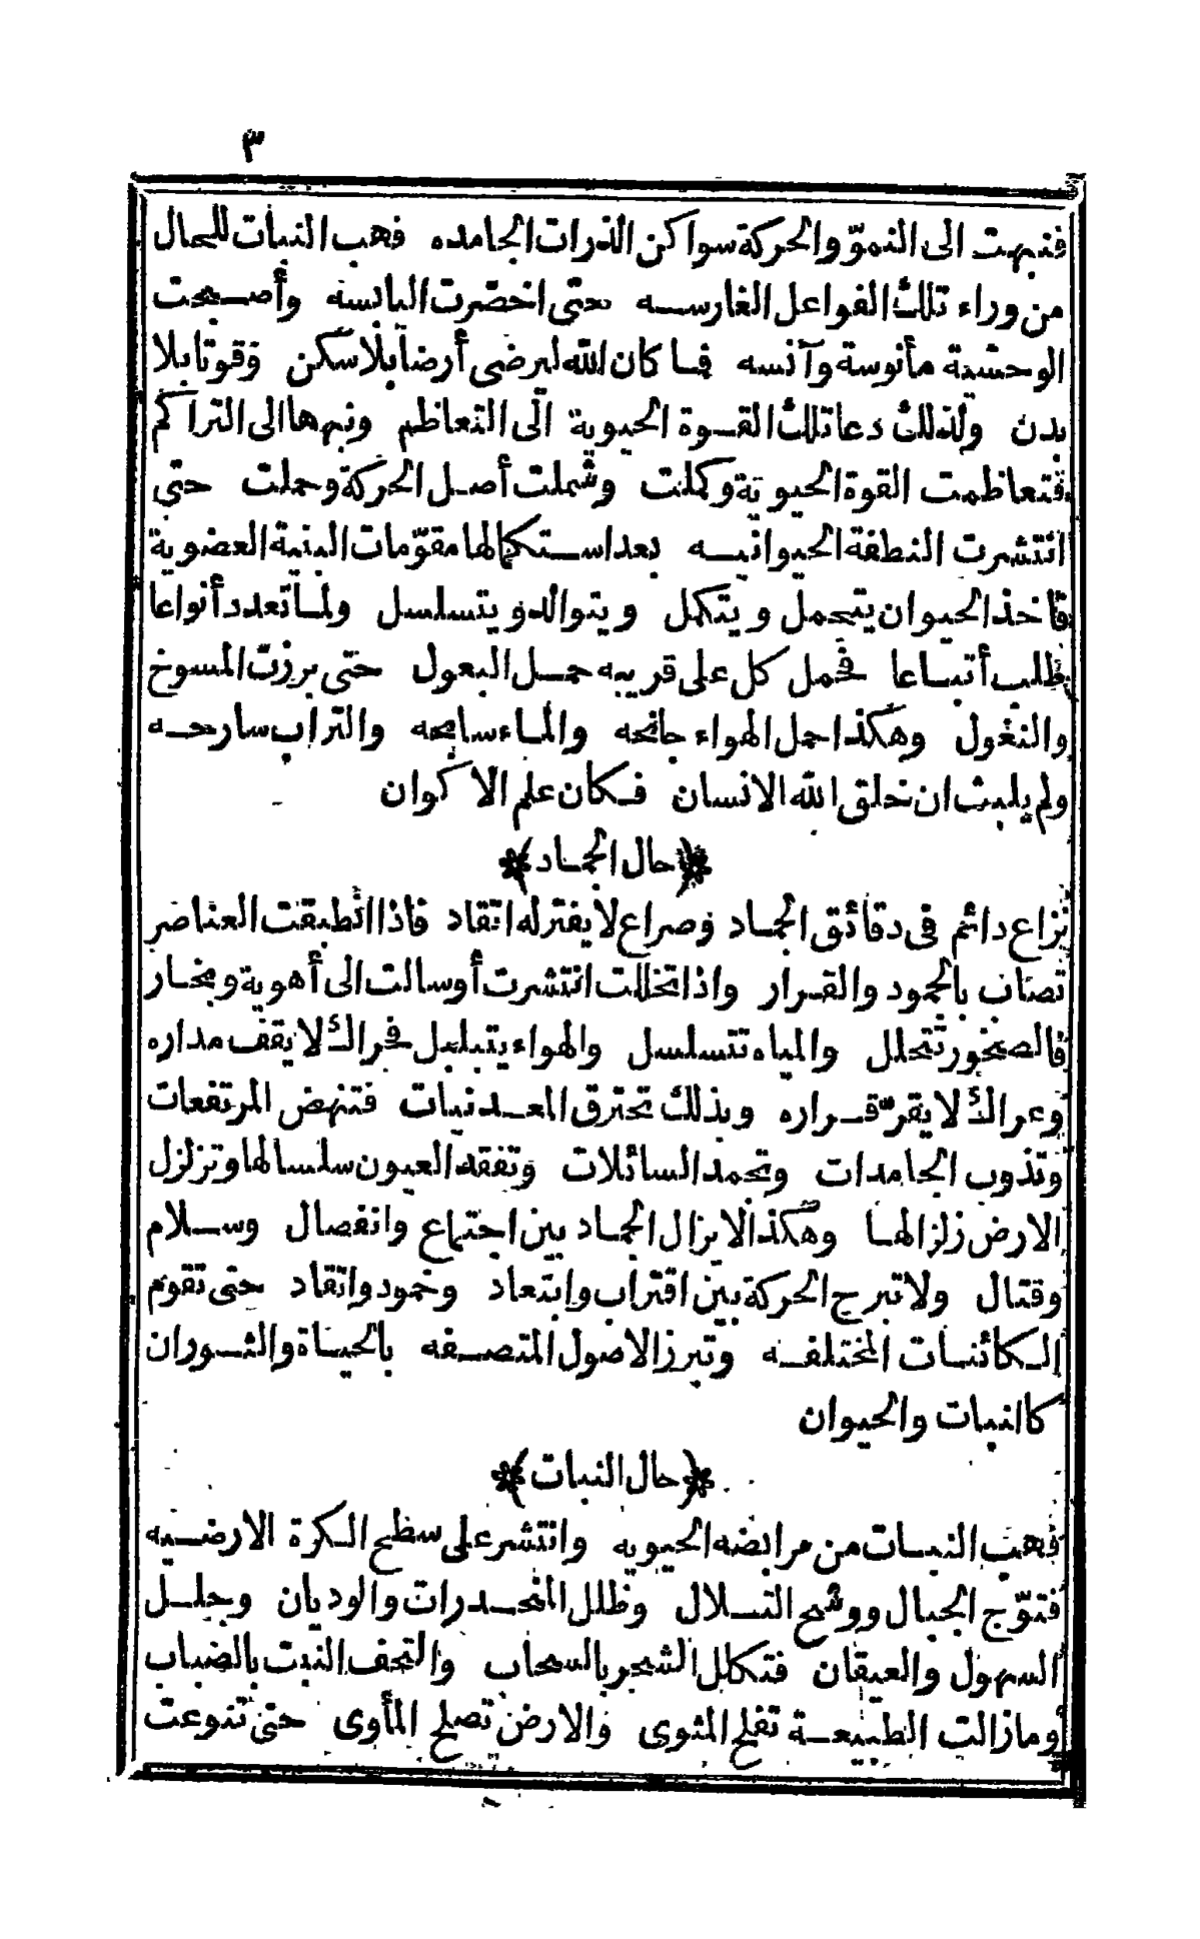 ٣
فنبهت الى النموّ والحركة سواكن الذرات الجامده فهب النبات للحال
من وراء تلك الفواعل الغارسه حتى اخضرت اليابسه وأصبحت
الوحشية مأنوسة وآنسه فما كان الله ليرضى أرضا بلا سكن وقوتا بلا
بدن ولذلك دعا تلك القوة الحيوية الى التعاظم ونبهها الى التراكم
فتعاظمت القوة الحيوية وكملت وشملت أصل الحركة وحملت حتى
انتشرت النطفة الحيوانيه بعد استكمالها مقوّمات البنية العضوية
فأخذ الحيوان يتجمل ويتكمل ويتوالد ويتسلسل ولما تعدد أنواعا
طلب أتباعا فحمل كل على قريبه حمل البعول حتى برزت المسوخ
والنغول وهكذا حمل الهواء جانحه والماء سابحه والتراب سارحه
ولم يلبث ان خلق الله الانسان فكان علم الاكوان
﴿حال الجماد﴾
نزاع دائم فى دقائق الجماد وصراع لا يفتر له اتقاد فاذا انطبقت العناصر
تصاب بالجمود والقرار واذا تخللت انتشرت أو سالت الى أهوية وبخار
فالصخور تتحلل والمياه تتسلسل والهواء يتبلبل فحراك لا يقف مداره
وعراك لا يقرّ قراره وبذلك تحترق المعدنيات فتنهض المرتفعات
وتذوب الجامدات وتجمد السائلات وتفقد العيون سلسالها وتزلزل
الارض زلزالها وهكذا لا يزال الجماد بين اجتماع وانفصال وسلام
وقتال ولا تبرح الحركة بين اقتراب وابتعاد وخمود واتقاد حتى تقوم
الكائنات المختلفه وتبرز الاصول المتصفه بالحياة والثوران
كالنبات والحيوان
﴿حال النبات﴾
فهب النبات من مرابضه الحيويه وانتشر على سطح الكرة الارضيه
فتوّج الجبال ووشح التلال وظلل المنحدرات والوديان وجلل
السهول والغيقان فتكلل الشجر بالسحاب والتحف النبت بالضباب
وما زالت الطبيعة تفلح المثوى والارض تصلح المأوى حتى تنوعت